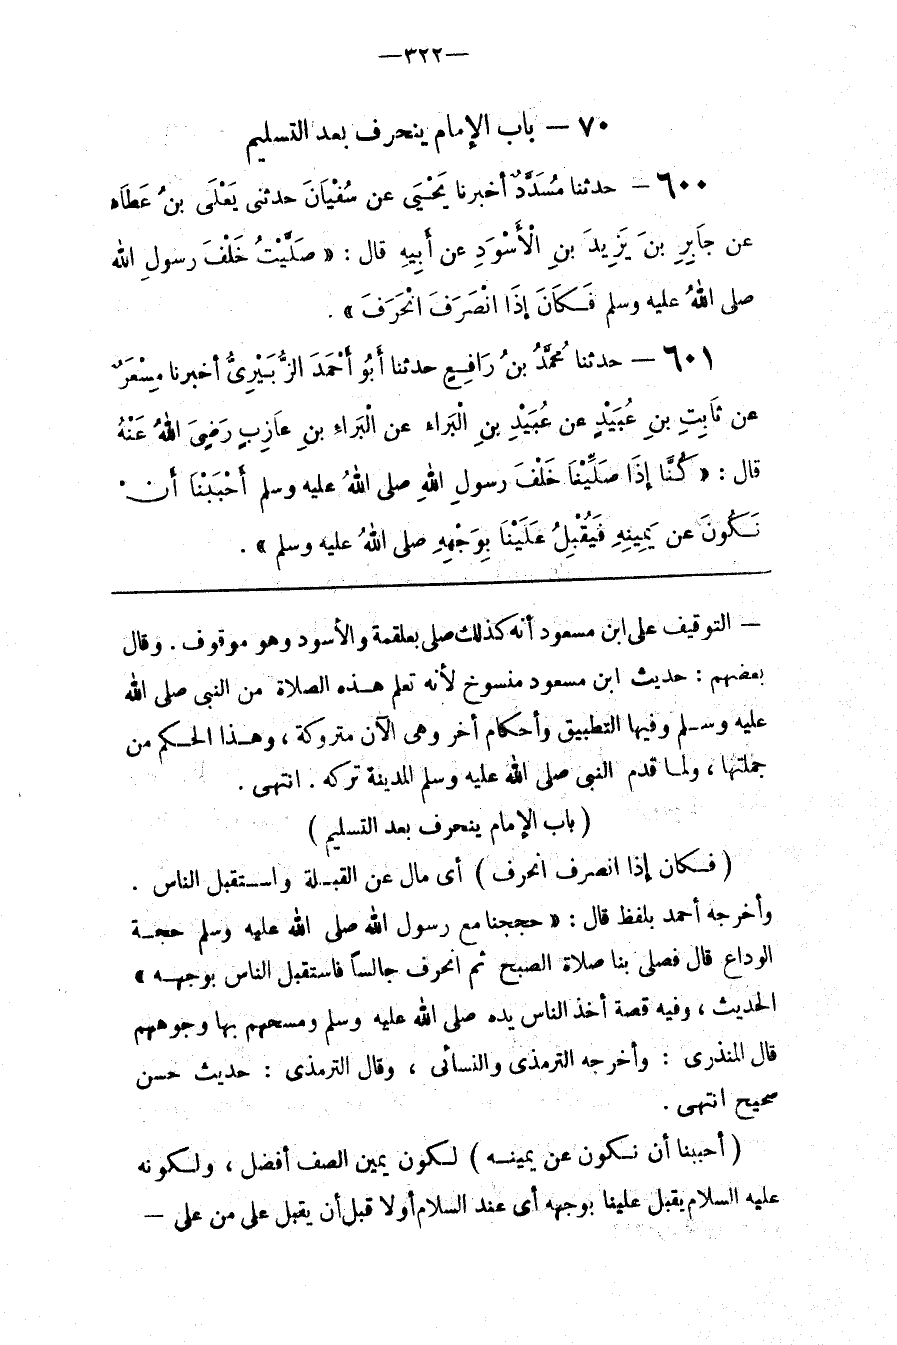 —٣٢٢—
٧٠ — باب الإمام ينحرف بعد التسليم
٦٠٠ — حدثنا مُسَدَّدٌ أخبرنا يَحْيَى عن سُفْيَانَ حدثنى يَعْلَى بنُ عَطَاء
عن جَابِرِ بنِ يَزِيدَ بنِ الْأَسْوَدِ عن أَبِيهِ قال : « صَلَّيْتُ خَلْفَ رسولِ الله
صلى اللهُ عليه وسلم فَـكَانَ إذَا انْصَرَفَ انْحَرَفَ » .
٦٠١ — حدثنا مُحمَّدُ بنُ رَافِـعٍ حدثنا أَبُو أَحْمَدَ الزُّبَيْرِىُّ أخبرنا مِسْعَرٌ
عن ثَابِتِ بنِ عُبَيْدٍ عن عُبَيْدِ بنِ الْبَرَاء عن الْبَرَاءِ بنِ عَازِبٍ رَضِىَ اللهُ عَنْهُ
قال : « كُنَّا إذَا صَلَّيْنَا خَلْفَ رسولِ اللهِ صلى اللهُ عليه وسلم أَحْبَبْنَا أن
نَـكُونَ عن يَمِينِهِ فَيُقْبِلُ عَلَيْنَا بِوَجْهِهِ صلى اللهُ عليه وسلم » .
— التوقيف على ابن مسعود أنه كذلك صلى بعلقمة والأسود وهو موقوف . وقال
بعضهم : حديث ابن مسعود منسوخ لأنه تعلم هـذه الصلاة من النبى صلى الله
عليه وسـلم وفيها التطبيق وأحكام أخر وهى الآن متروكة ، وهـذا الحـكم من
جملتها ، ولمـا قدم النبى صلى الله عليه وسلم المدينة تركه . انتهى .
( باب الإمام ينحرف بعد التسليم )
( فـكان إذا انصرف انحرف ) أى مال عن القبـلة واسـتقبل الناس .
وأخرجه أحمد بلفظ قال : « حججنا مع رسول الله صلى الله عليه وسلم حجـة
الوداع قال فصلى بنا صلاة الصبح ثم انحرف جالساً فاستقبل الناس بوجهـه »
الحديث ، وفيه قصة أخذ الناس يده صلى الله عليه وسلم ومسحهم بها وجوههم
قال المنذرى : وأخرجه الترمذى والنسائى ، وقال الترمذى : حديث حسن
صحيح انتهى .
( أحببنا أن نـكون عن يمينـه ) لـكون يمين الصف أفضل ، ولـكونه
عليه السلام يقبل علينا بوجهه أى عند السلام أولا قبل أن يقبل على من على —